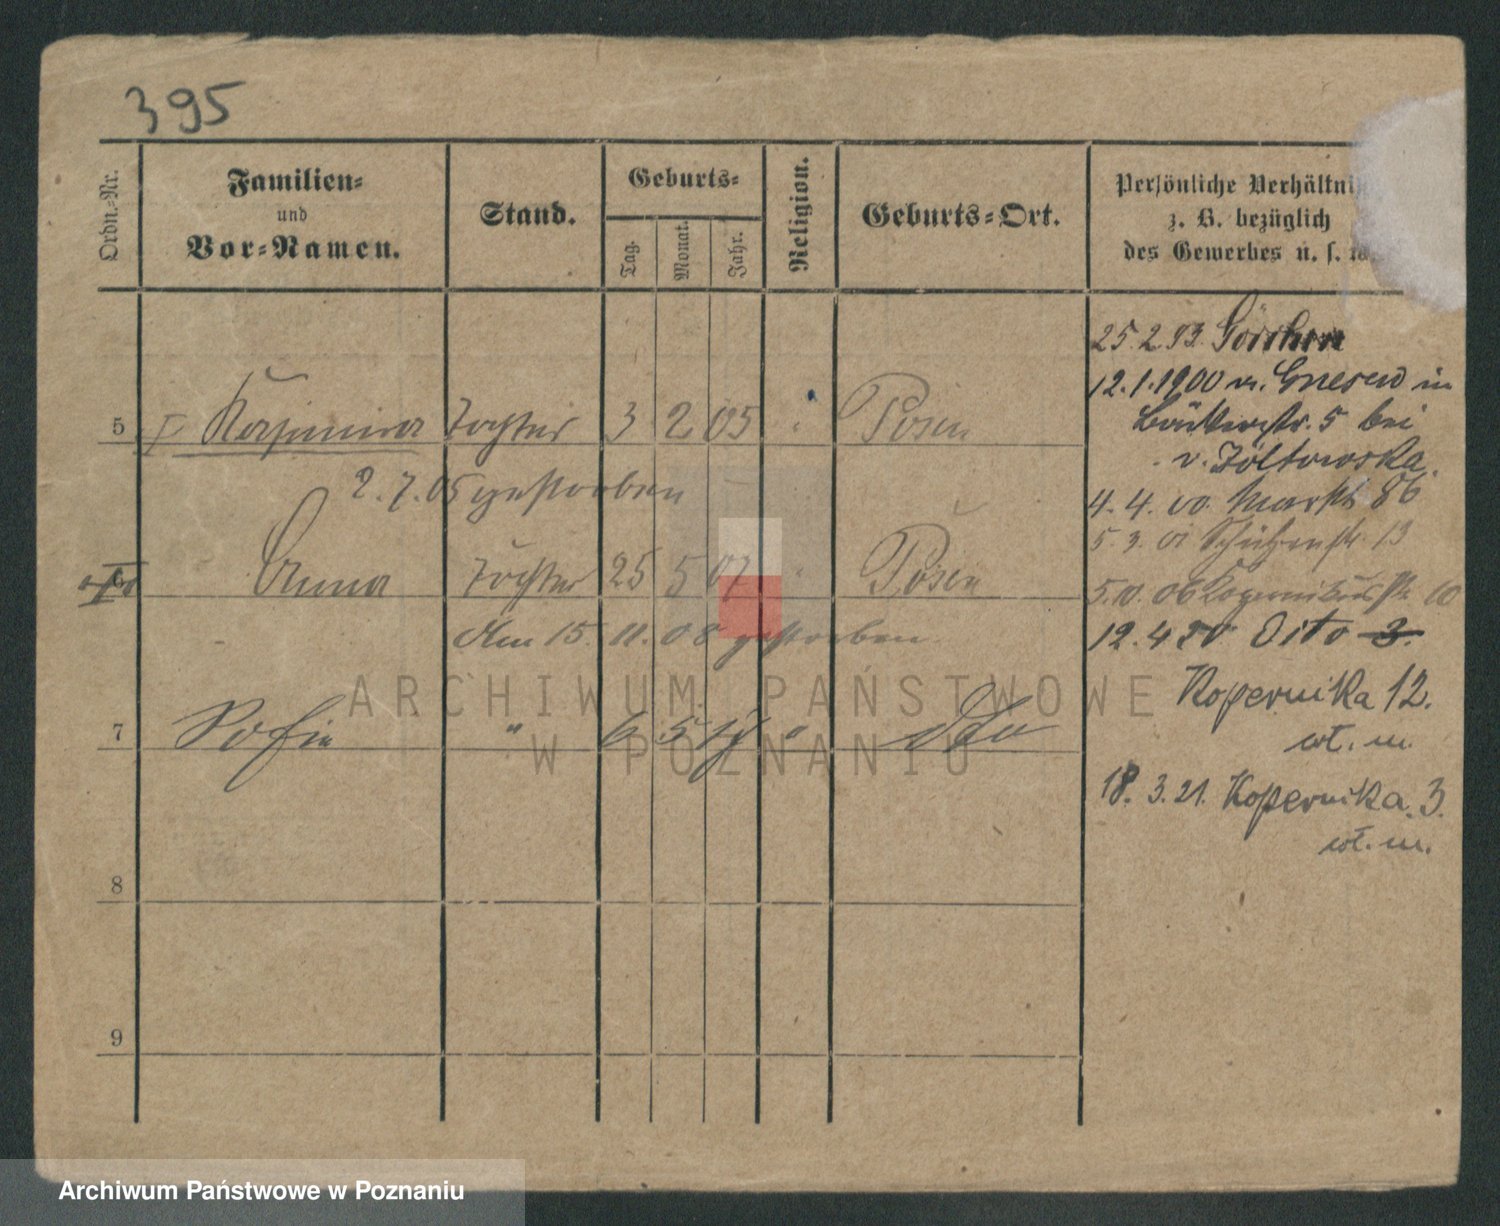 395
Ordn.-Nr.
Familien-
und
Vor-Namen.
Stand.
Geburts-
Tag.
Monat.
Jahr.
Religion.
Geburts-Ort.
Persönliche Verhältni
z. B. bezüglich
des Gewerbes u. s. w.
25.2.93. Görchen
12.1.1900 v. Gnesen in
Bäckerstr. 5 bei
v. Żółtowska.
5 Kasimira Tochter 3 2 05 " Posen
4.4.00. Markt 86
2.7.05 gestorben
5.3.01 Schützenstr. 13
6 Anna Tochter 25 5 07 " Posen
5.10.06 Kopernikusstr. 10
den 15. 11. 08 gestorben
12.4 20 Oito 3.
Kopernika 12.
wł. m.
7 Sofie " 6 5 " dto
18. 3. 21. Kopernika. 3.
wł. m.
8
9
ARCHIWUM PAŃSTWOWE
W POZNANIU
Archiwum Państwowe w Poznaniu